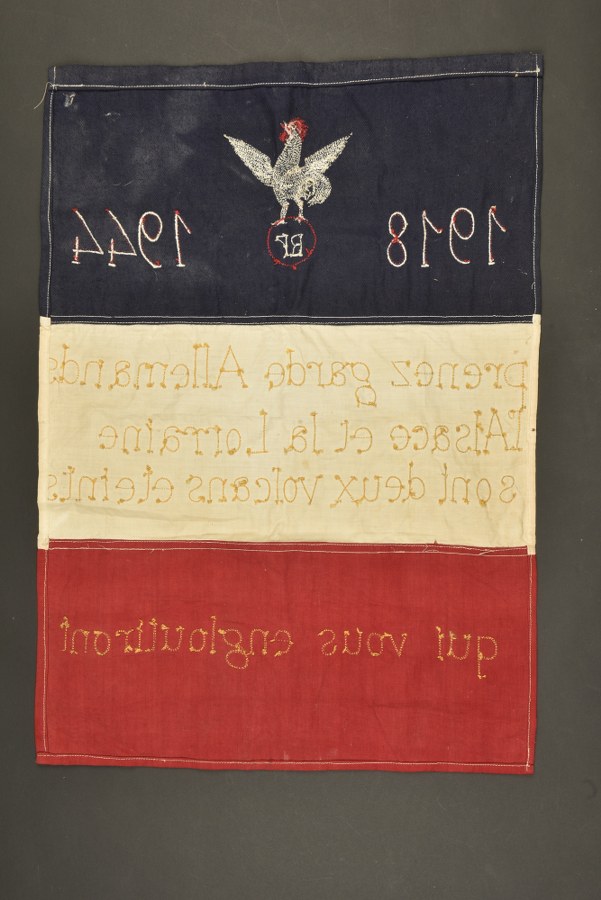 1918 1944
prenez garde Allemands
l'Alsace et la Lorraine
sont deux volcans eteints
qui vous engloutiront